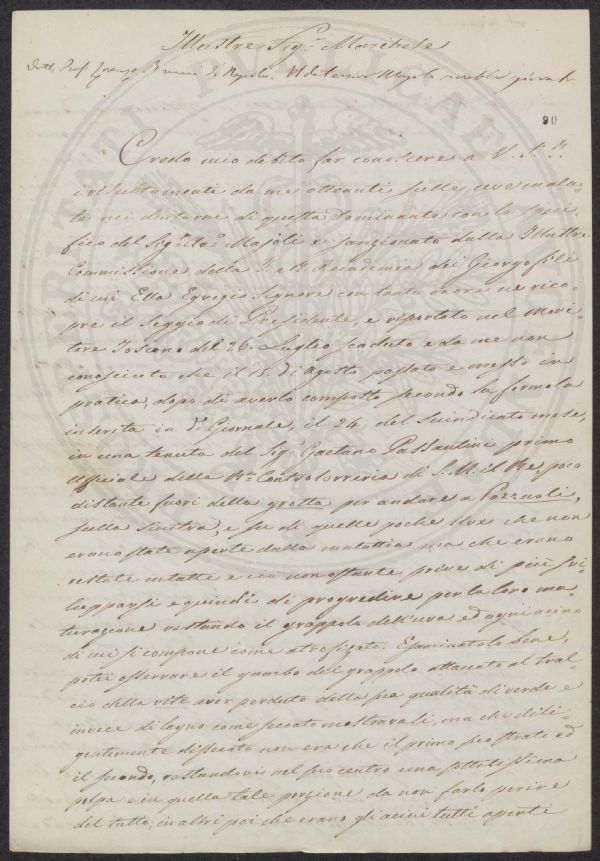 Illustre Sigr. Marchese
Dott. Prof. Lorenzo Bruni di Napoli.
90
Credo mio debito far conoscere a V. S. I.
i risultamenti da me ottenuti sulle uve mala-
te nei dintorni di questa Dominante con lo speci-
fico del Sigr. Majoli sanzionato dalla Illustre
Commissione della I. e R. Accademia dei Georgofili
di cui Ella Egregio Signore con tanto onore ne rico-
pre il Seggio di Presidente, e riportato nel Moni-
tore Toscano del 26. Luglio scaduto e da me non
conosciuto che il 15. di Agosto passato e messo in
pratica, dopo di averlo composto secondo la formola
inserita in do. Giornale, il 24. del suindicato mese,
in una tenuta del Sigr. Gaetano Passantini primo
Ufficiale della Rl. Controlorreria di S. M. il Re, poco
distante fuori della grotta per andare a Pozzuoli,
sulla sinistra, e su di quelle poche uve che non
erano state aperte dalla malattia ma che erano
restate intatte e ciò non ostante prive di più svi-
lupparsi e quindi di progredire per la loro ma-
turazione restando il grappolo dell'uva ed ogni acino
di cui si compone come atrofizato. Esaminatolo bene,
potei osservare il gambo del grappolo attaccato al tral-
cio della vite aver perduto della sua qualità di verde e
invece di legno come seccato mostravasi, ma che dili-
gentemente disseccato non era che il primo suo strato ed
il secondo, restandovi nel suo centro una sottilissima
polpa e in quella tale porzione da non farlo perire
del tutto, in altri poi che erano gli acini tutti aperti